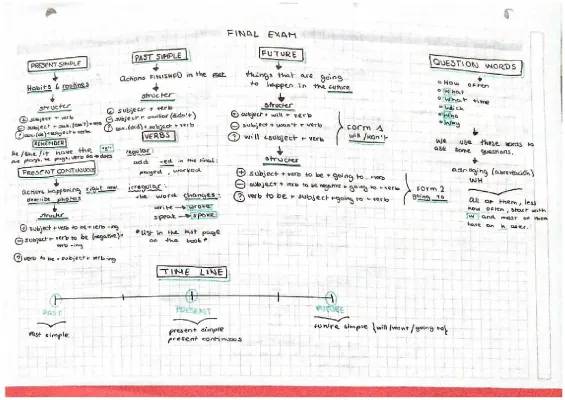 FINAL EXAM
PRESENT SIMPLE
Habits & routines
structer
⊕ subject + verb
⊖ subject + aux. (don't) + verb
REMEMBER
he/she/it have the "s"
PRESENT CONTINUOUS
Actions happening right now
describe photos
structer
⊕ subject + verb to be + verb -ing
⊖ subject + verb to be (negative) + verb -ing
? verb to be + subject + verb-ing
PAST SIMPLE
Actions FINISHED in the past
structer
⊕ subject + verb
⊖ subject + auxiliar (didn't)
VERBS
regular:
add -ed in the final:
played, worked
irregular:
the word changes:
write → wrote
speak → spoke
*List in the last page
of the book*
FUTURE
things that are going
to happen in the future
structer
⊕ subject + will + verb
⊖ subject + won't + verb
? will + subject + verb
FORM 1
will/won't
structer
⊕ subject + verb to be + going to + verb
⊖ subject + verb to be negative + going to + verb
? verb to be + subject + going to + verb
FORM 2
going to
QUESTION WORDS
How often
What
What time
Which
Who
Why
We use these words to
ask some questions.
WH
All of them, less
how often, start with
W and most of them
have an h after.
TIME LINE
PAST
PRESENT
FUTURE
Past simple
present simple
present continuous
future simple {will/won't/going to}